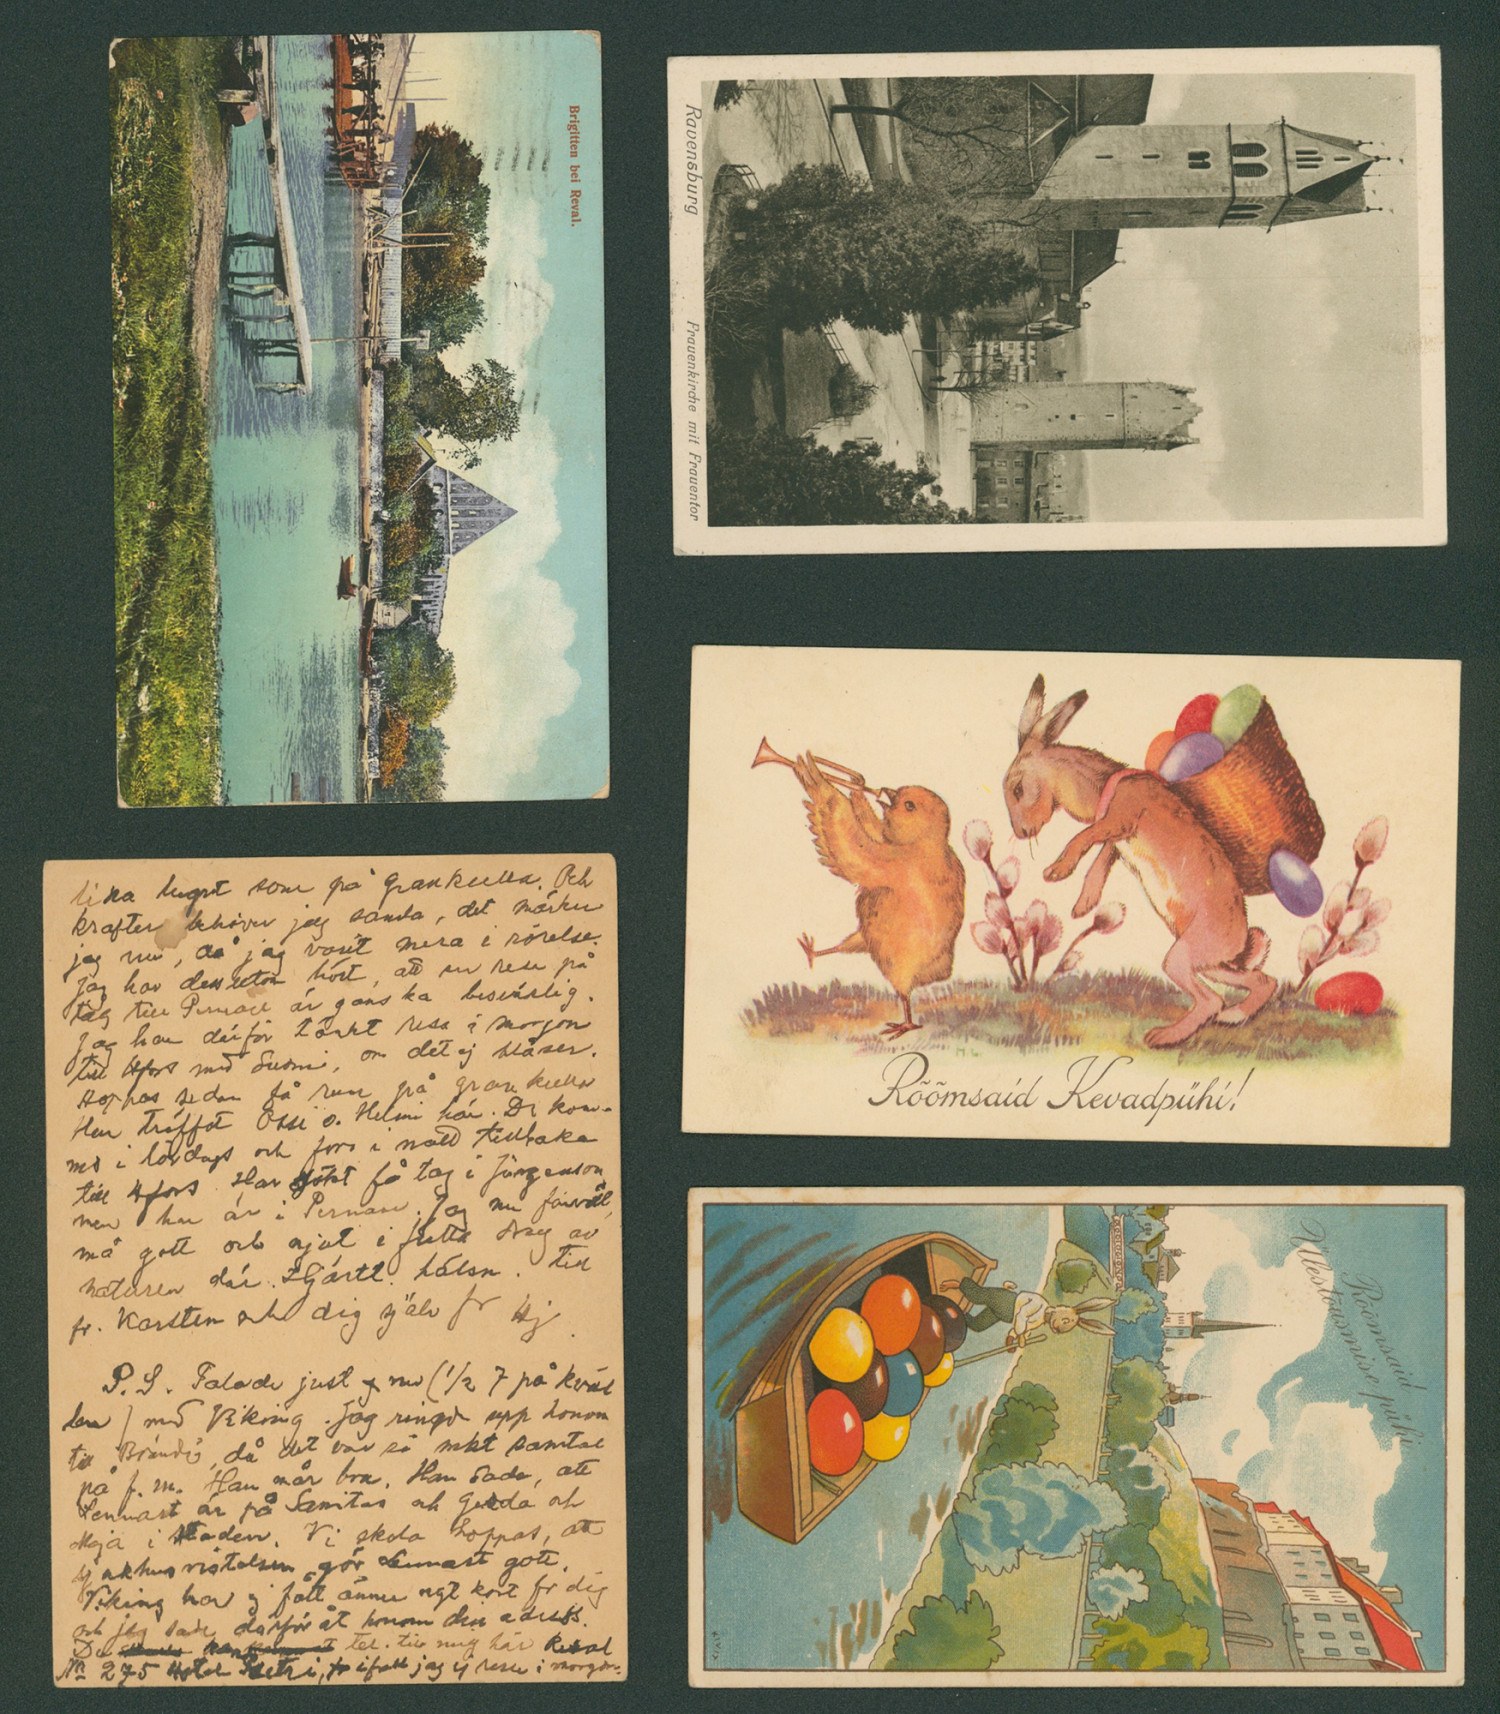 Brigitten bei Reval.
Ravensburg
Frauenkirche mit Frauentor
Rõõmsaid Kevadpühi!
Rõõmsaid
Ülestõusmise pühi
lika lugnt som på Grankulla. Och
krafter behöver jag samla, det märker
jag nu, då jag varit mera i rörelse.
Jag har dessutom hört, att en resa på
tåg till Pernau är ganska besvärlig.
Jag har därför tänkt resa i morgon
till Hfors med Suomi, om det ej blåser.
Hoppas sedan få rum på Grankulla
Har träffat Ossi o. Helmi här. De kom-
mo i lördags och foro i natt tillbaka
till Hfors. Har sökt få tag i Jürgenson
men han är i Pernau. Jag nu farväl,
må gott och njut i fulla drag av
naturen där. Hjärtl. hälsn. till
fr. Karsten och dig själv fr Hj.
P.S. Talade just nu (1/2 7 på kväl
len) med Viking. Jag ringde upp honom
till Brändö, då det var så mkt samtal
på f.m. Han mår bra. Han sade, att
Lennart är på Sanitas och Gerda och
Maja i staden. Vi skola hoppas, att
sjukhusvistelsen gör Lennart gott.
Viking har ej fått ännu ngt kort fr dig
och jag sade därför åt honom din adress.
Du tel. till mig här Reval
No 275 Hotel Petri, ifall jag ej reser i morgon.